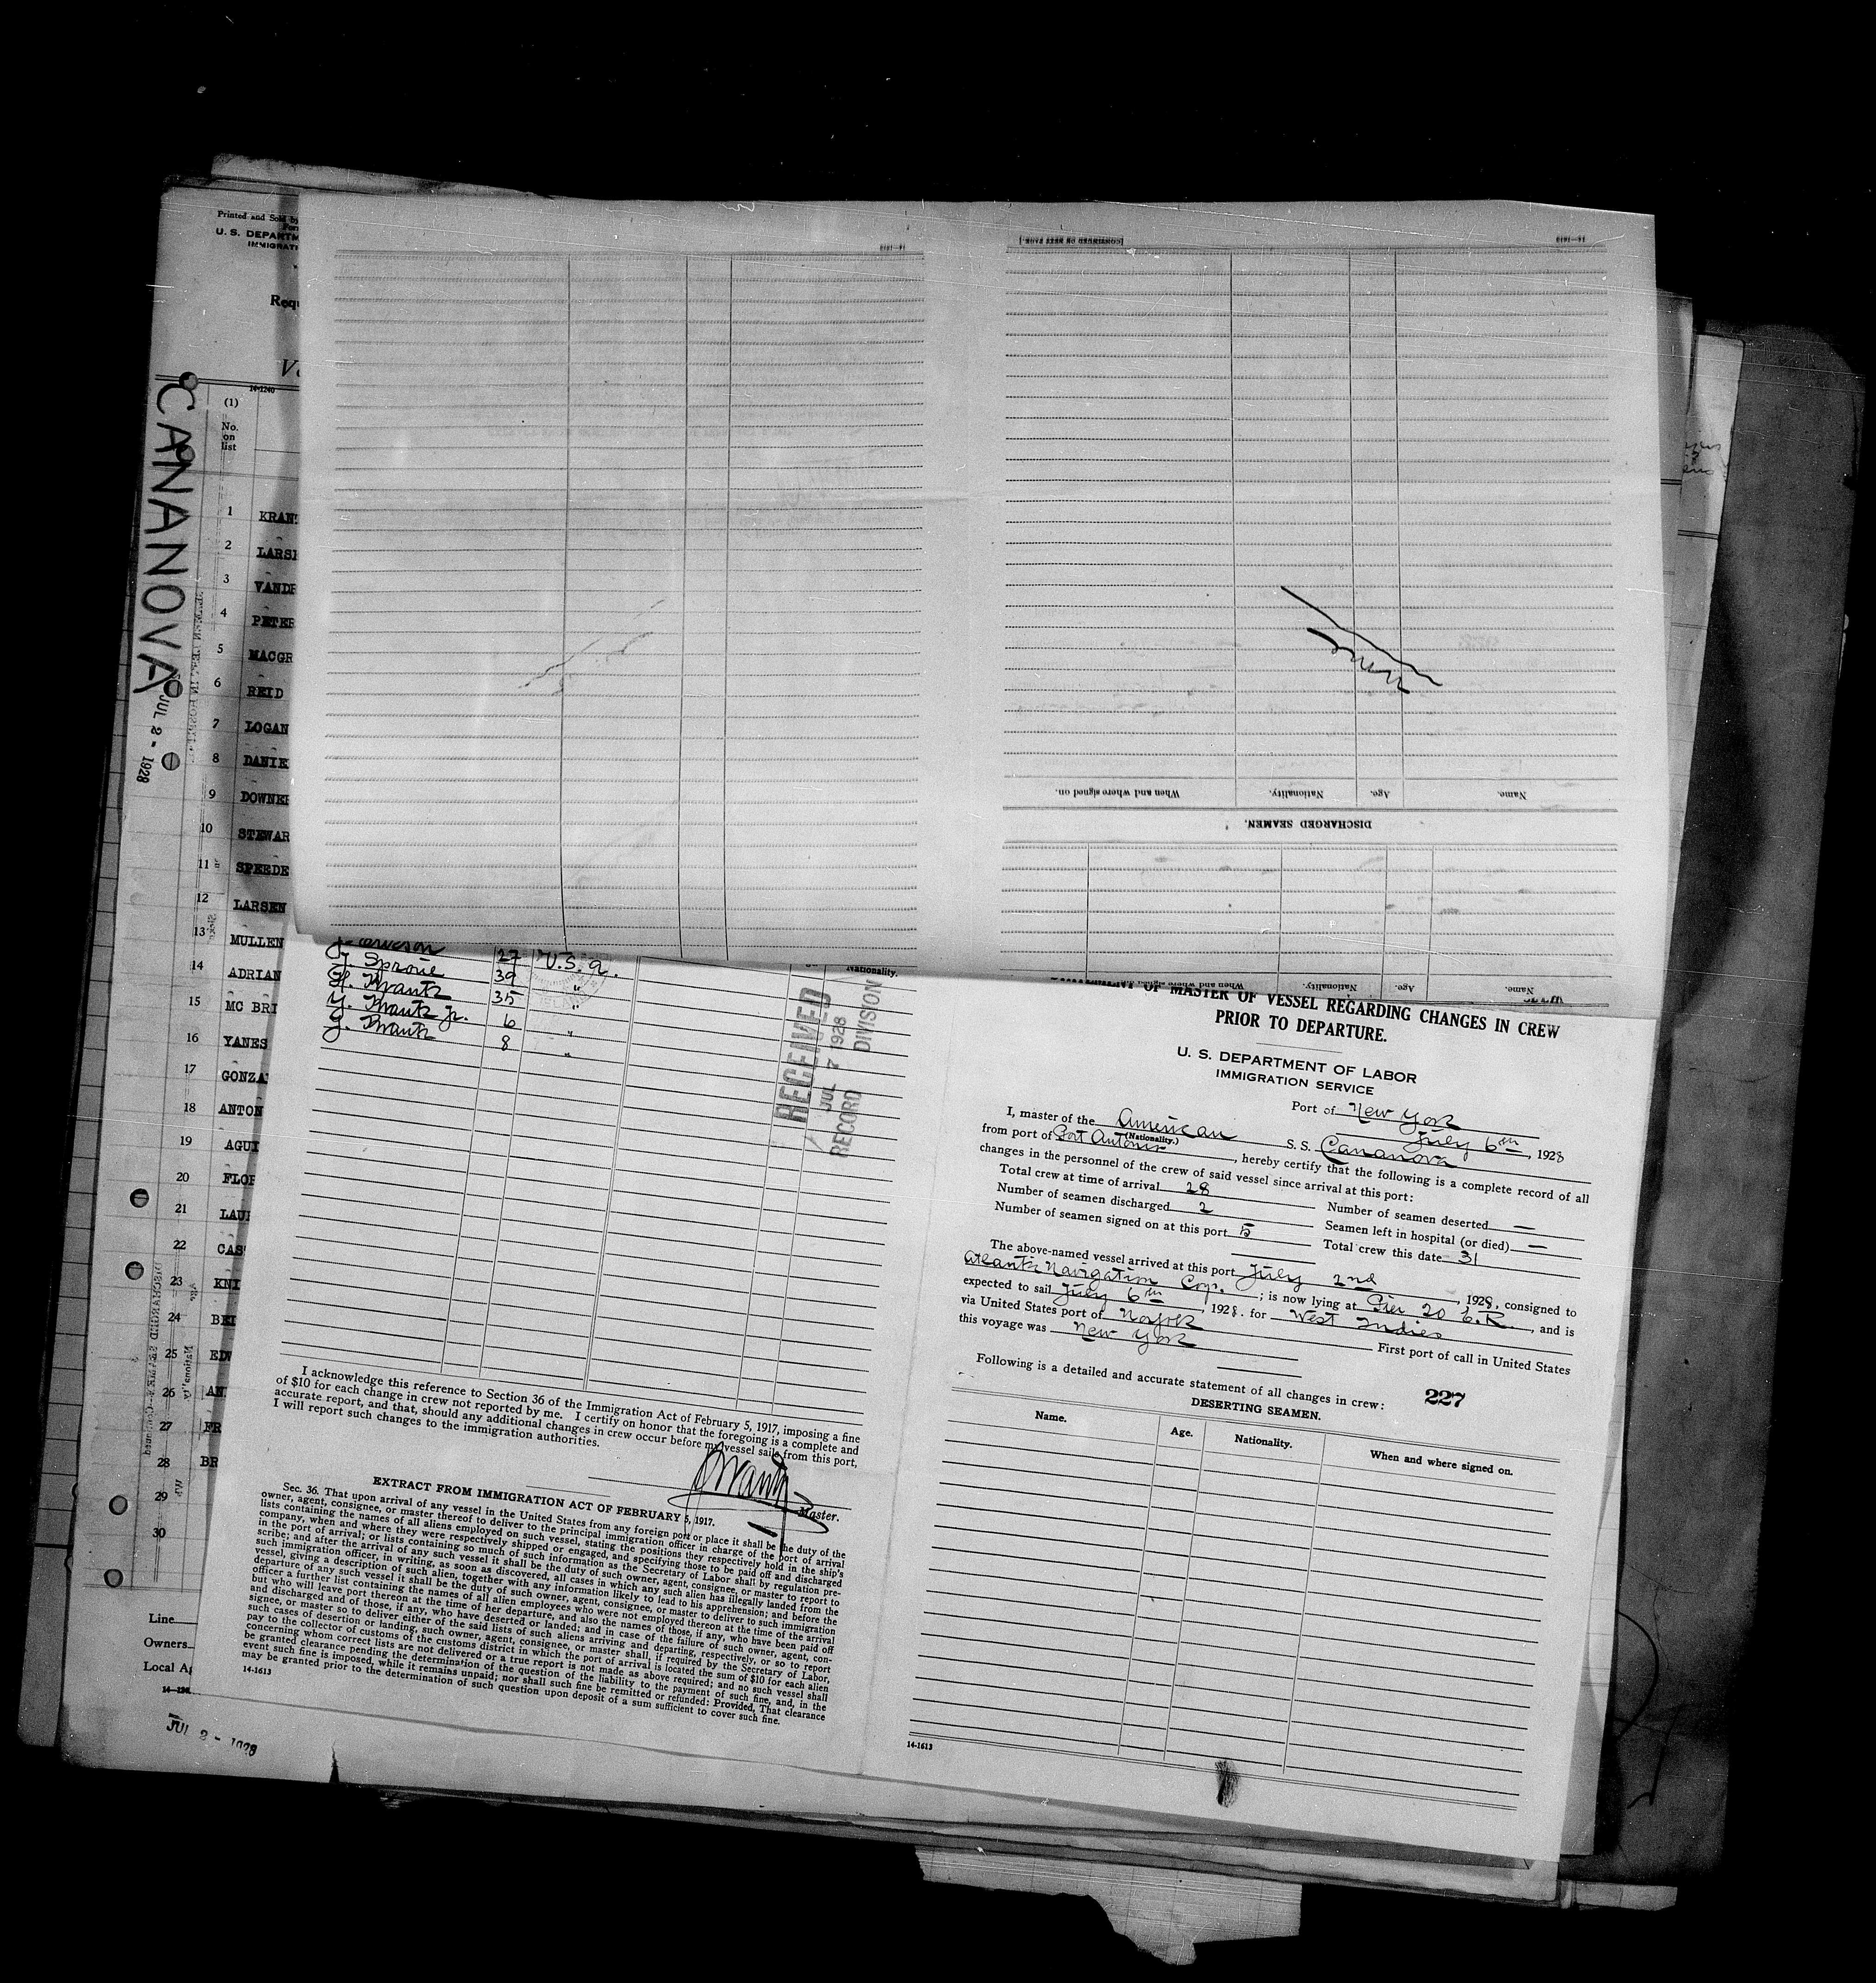 Printed and Sold by
U. S. DEPARTM
IMMIGRATI
Requ
14-1240
(1)
No.
on
list
CANANOVA
JUL 2 - 1928
1 KRAN
2 LARS
3 VANDE
4 PETER
5 MACGR
6 REID
7 LOGAN
8 DANIE
9 DOWNE
10 STEWAR
11 SPEEDE
12 LARSEN
13 MULLEN
14 ADRIAN
15 MC BRI
16 YANES
17 GONZA
18 ANTON
19 AGUI
20 FLOR
21 LAU
22 CAS
23 KNI
24 BE
25 ED
26 AN
27 FR
28 BR
29
30
Line
Owners
Local A
JUL 2 - 1928
14-1613
[CONTINUED ON NEXT PAGE.]
14-1613
When and where signed on.
Nationality.
Age.
Name.
DISCHARGED SEAMEN.
When and where signed on.
Nationality.
Age.
Name.
Nationality.
27 U.S.A.
J. Sproue 39 "
H. Krantz 35 "
Y. Krantz Jr. 6 "
Y. Krantz 8 "
RECEIVED
JUL 7 1928
RECORD DIVISION
I acknowledge this reference to Section 36 of the Immigration Act of February 5, 1917, imposing a fine
of $10 for each change in crew not reported by me. I certify on honor that the foregoing is a complete and
accurate report, and that, should any additional changes in crew occur before my vessel sails from this port,
I will report such changes to the immigration authorities.
Master.
EXTRACT FROM IMMIGRATION ACT OF FEBRUARY 5, 1917.
Sec. 36. That upon arrival of any vessel in the United States from any foreign port or place it shall be the duty of the
owner, agent, consignee, or master thereof to deliver to the principal immigration officer in charge of the port of arrival
lists containing the names of all aliens employed on such vessel, stating the positions they respectively hold in the ship's
company, when and where they were respectively shipped or engaged, and specifying those to be paid off and discharged
in the port of arrival; or lists containing so much of such information as the Secretary of Labor shall by regulation pre-
scribe; and after the arrival of any such vessel it shall be the duty of such owner, agent, consignee, or master to report to
such immigration officer, in writing, as soon as discovered, all cases in which any such alien has illegally landed from the
vessel, giving a description of such alien, together with any information likely to lead to his apprehension; and before the
departure of any such vessel it shall be the duty of such owner, agent, consignee, or master to deliver to such immigration
officer a further list containing the names of all alien employees who were not employed thereon at the time of the arrival
but who will leave port thereon at the time of her departure, and also the names of those, if any, who have been paid off
and discharged and of those, if any, who have deserted or landed; and in case of the failure of such owner, agent, con-
signee, or master so to deliver either of the said lists of such aliens arriving and departing, respectively, or so to report
such cases of desertion or landing, such owner, agent, consignee, or master shall, if required by the Secretary of Labor,
pay to the collector of customs of the customs district in which the port of arrival is located the sum of $10 for each alien
concerning whom correct lists are not delivered or a true report is not made as above required; and no such vessel shall
be granted clearance pending the determination of the question of the liability to the payment of such fine, and, in the
event such fine is imposed, while it remains unpaid; nor shall such fine be remitted or refunded: Provided, That clearance
may be granted prior to the determination of such question upon deposit of a sum sufficient to cover such fine.
14-1613
OF MASTER OF VESSEL REGARDING CHANGES IN CREW
PRIOR TO DEPARTURE.
U. S. DEPARTMENT OF LABOR
IMMIGRATION SERVICE
Port of New York
July 6th, 1928
I, master of the American S. S. Cananova
(Nationality.)
from port of Port Antonio, hereby certify that the following is a complete record of all
changes in the personnel of the crew of said vessel since arrival at this port:
Total crew at time of arrival 28 Number of seamen deserted —
Number of seamen discharged 2 Seamen left in hospital (or died) —
Number of seamen signed on at this port 5 Total crew this date 31
The above-named vessel arrived at this port July 2nd, 1928, consigned to
Atlantic Navigation Corp.; is now lying at Pier 20 E.R., and is
expected to sail July 6th, 1928. for West Indies
via United States port of Norfolk First port of call in United States
this voyage was New York
Following is a detailed and accurate statement of all changes in crew:
227
DESERTING SEAMEN.
Name. Age. Nationality. When and where signed on.
14-1613